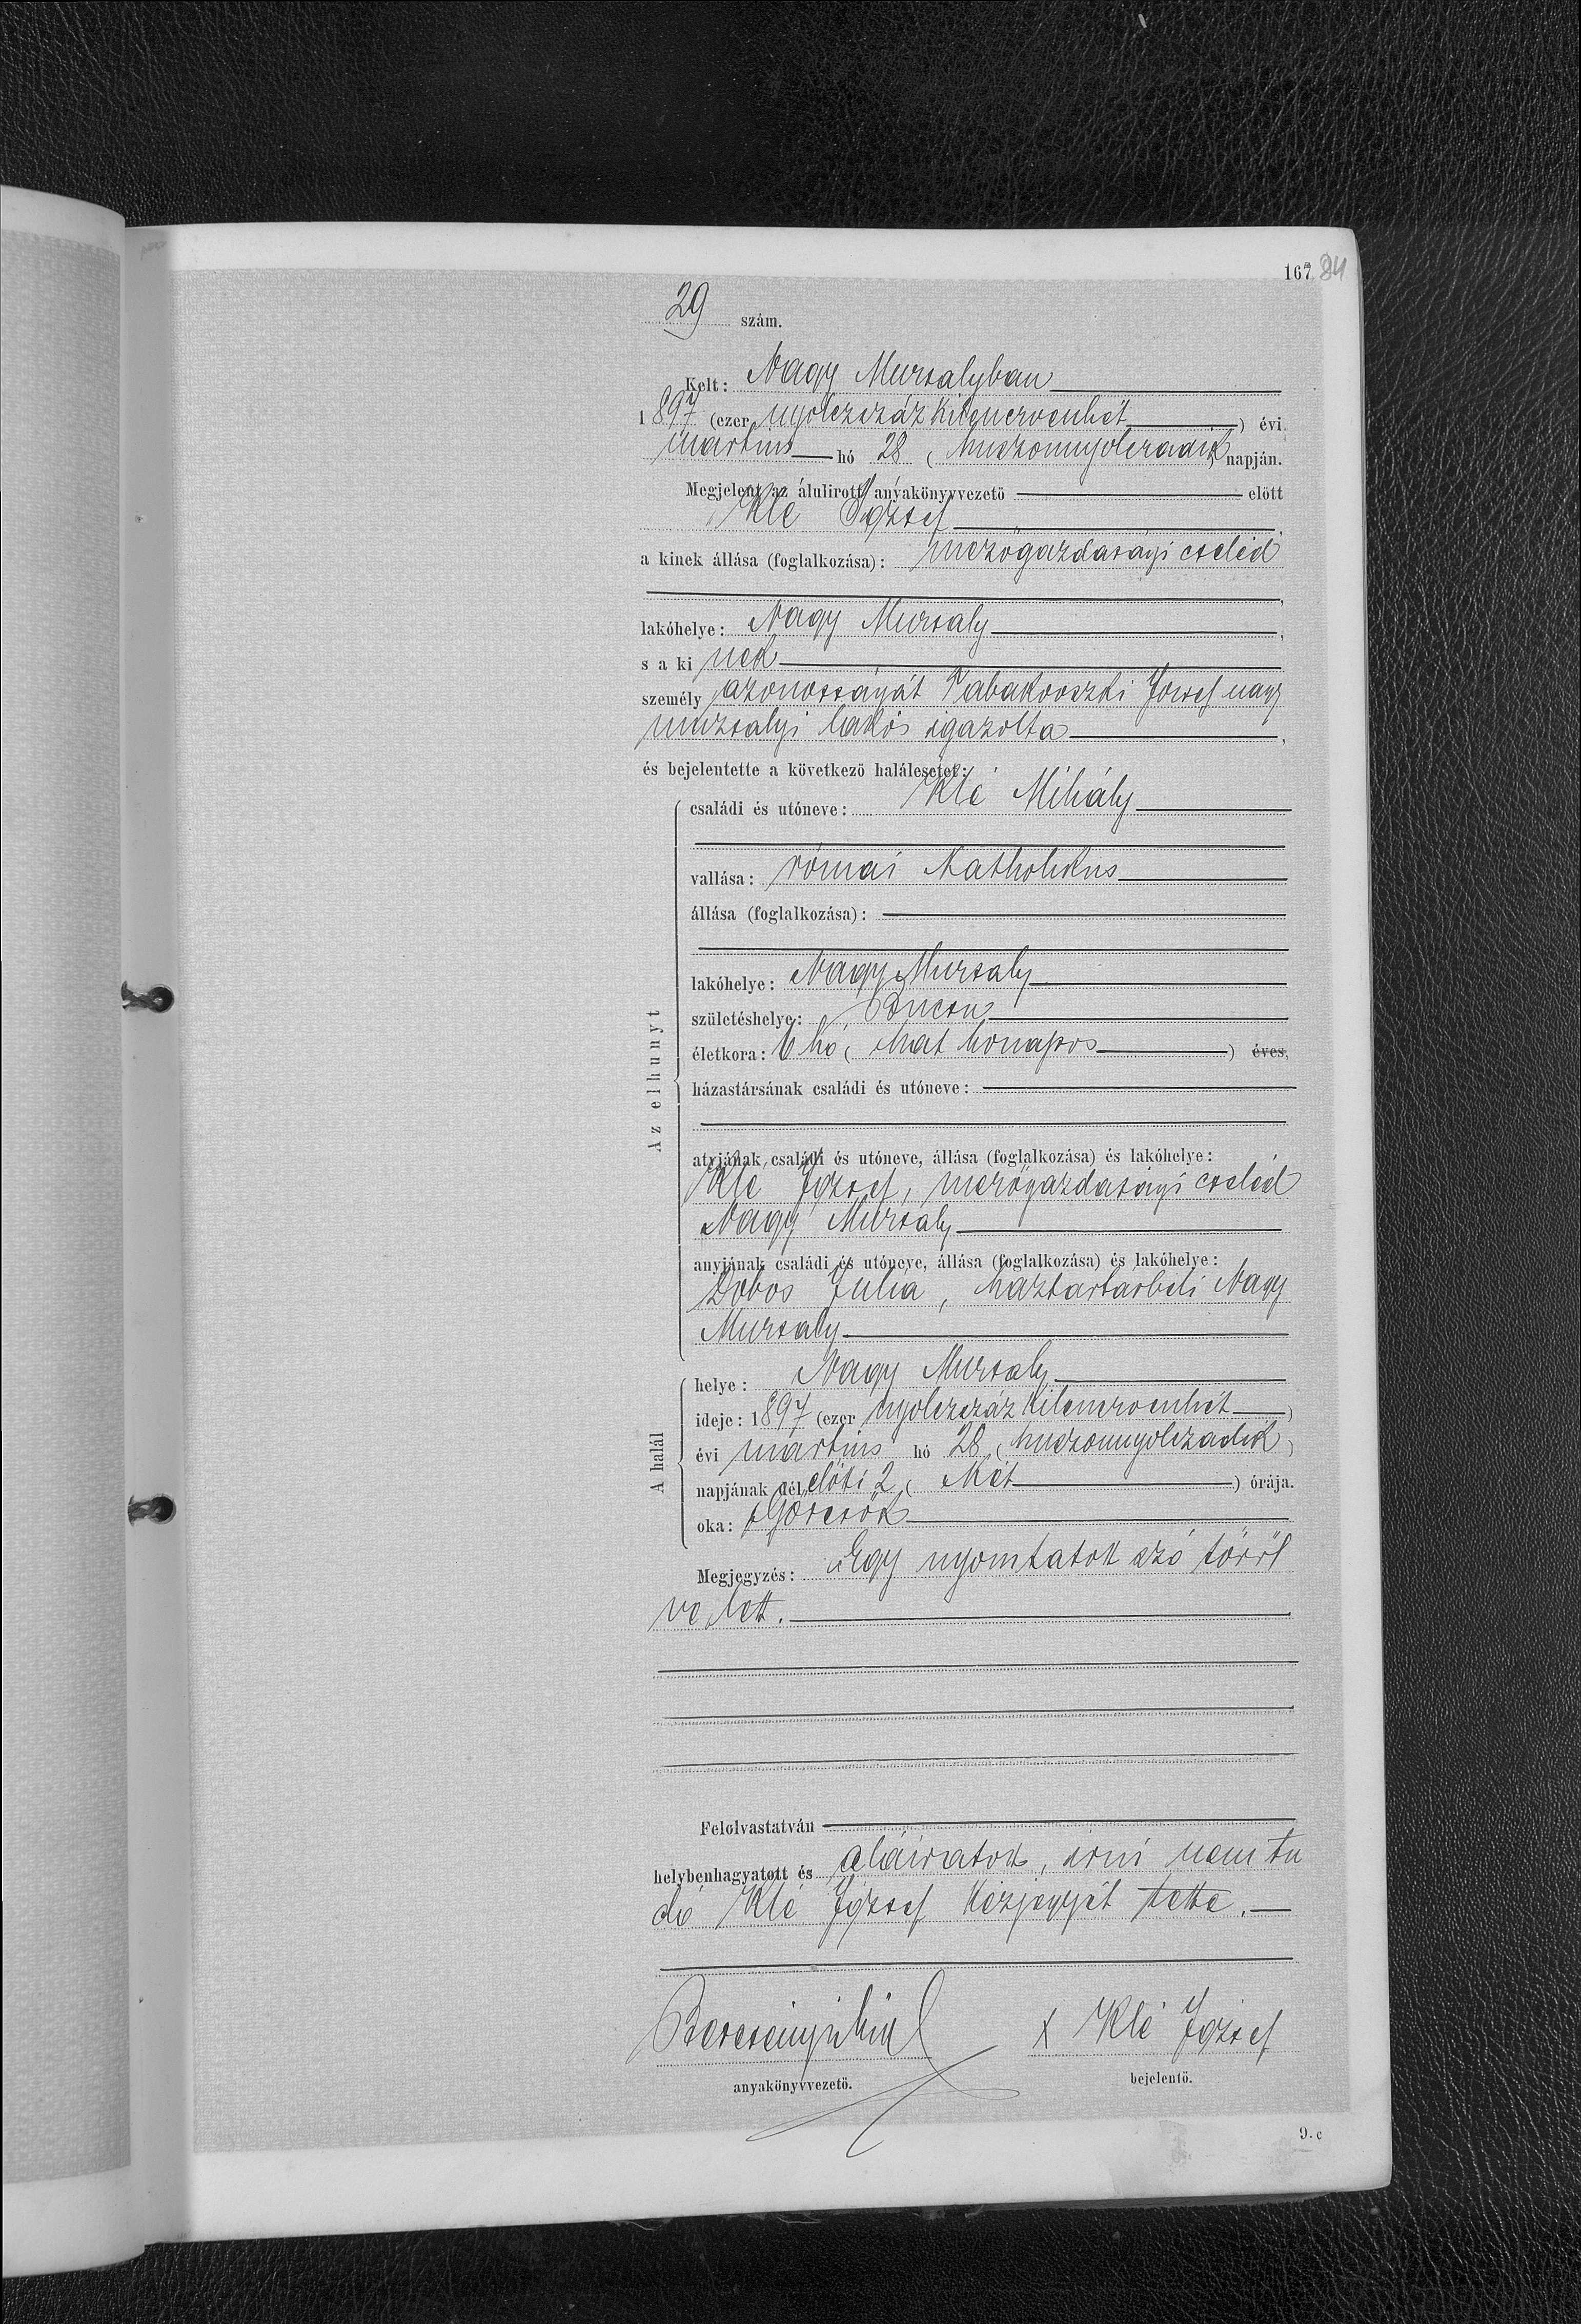 167 84
29 szám.
Kelt: Nagy Muzsalyban
1897 (ezer nyolczszáz kilenczvenhét) évi
martius hó 28 (huszonnyolczadik) napján.
Megjelent az alulirott anyakönyvvezető előtt
Klé József
a kinek állása (foglalkozása): mezőgazdasági cseléd
lakóhelye: Nagy Muzsaly,
s a ki nek
személy azonosságát Tabakovszki József nagy
muzsalyi lakós igazolta,
és bejelentette a következő halálesetet:
Az elhunyt
családi és utóneve: Klé Mihály
vallása: római katholikus
állása (foglalkozása):
lakóhelye: Nagy Muzsaly
születéshelye: Bucsu
életkora: 6 hó (hat hónapos) éves,
házastársának családi és utóneve:
atyjának családi és utóneve, állása (foglalkozása) és lakóhelye:
Klé József, mezőgazdasági cseléd
Nagy Muzsaly
anyjának családi és utóneve, állása (foglalkozása) és lakóhelye:
Dobos Julia, háztartásbeli Nagy
Muzsaly
A halál
helye: Nagy Muzsaly
ideje: 1897 (ezer nyolczszáz kilenczvenhét)
évi martius hó 28 (huszonnyolczadik)
napjának dél előtti 2 (két) órája.
oka: Görcsök
Megjegyzés: Egy nyomtatott szó töröl
ve lett.
Felolvastatván
helybenhagyatott és aláiratott, irni nem tu
dó Klé József kézjegyét tette.
x Klé József
anyakönyvvezető.
bejelentő.
9. c